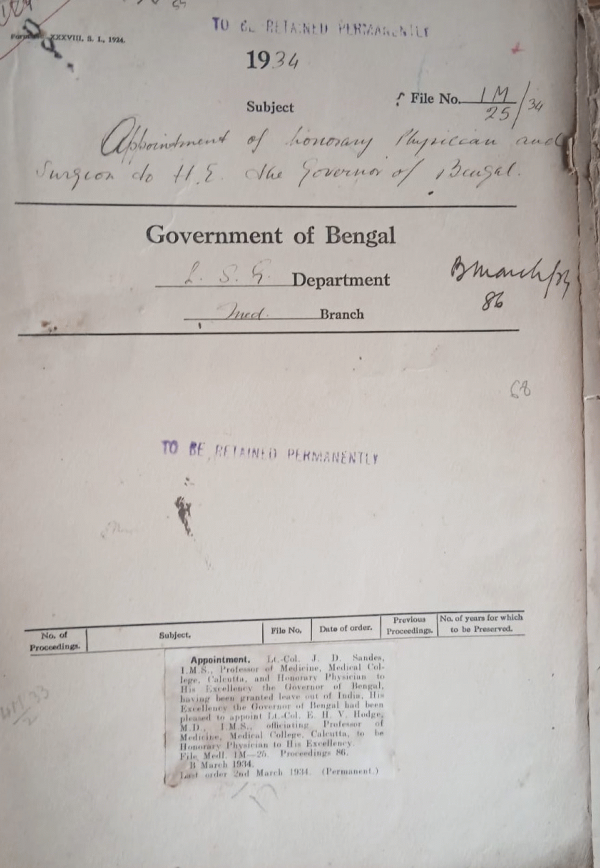 TO BE RETAINED PERMANENTLY
XXXVIII, S. I., 1924.
1934
Subject
File No. 1M/25/34
Appointment of honorary Physician and
Surgeon to H.E. the Governor of Bengal.
Government of Bengal
L. S. G. Department
B March/34
86
Med. Branch
68
TO BE RETAINED PERMANENTLY
No. of Proceedings. Subject. File No. Date of order. Previous Proceedings. No. of years for which to be Preserved.
Appointment. Lt.-Col. J. D. Sandes,
I.M.S., Professor of Medicine, Medical Col-
lege, Calcutta, and Honorary Physician to
His Excellency the Governor of Bengal,
having been granted leave out of India, His
Excellency the Governor of Bengal had been
pleased to appoint Lt.-Col. E. H. V. Hodge,
M.D., I.M.S., officiating Professor of
Medicine, Medical College, Calcutta, to be
Honorary Physician to His Excellency.
File Medl. 1M—25. Proceedings 86.
B March 1934.
Last order 2nd March 1934. (Permanent.)